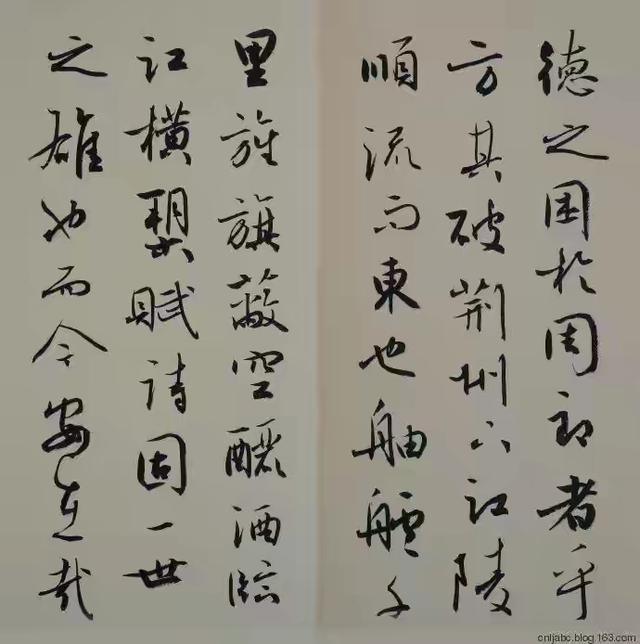 德之困於周郎者乎
方其破荆州下江陵
順流而東也舳艫千
里旌旗蔽空釃酒臨
江橫槊賦詩固一世
之雄也而今安在哉
cnljabc.blog.163.com